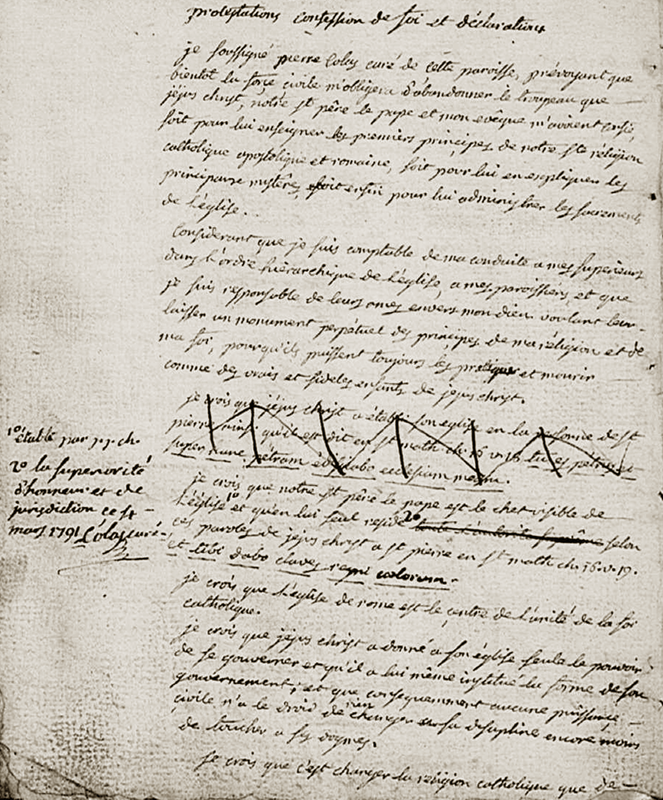 protestations confession de foi et déclarations
je soussigné pierre Colas curé de cette paroisse, prévoyant que
bientot la force civile m'obligera d'abandonner le troupeau que
jéjus christ, notre st père le pape et mon eveque m'avoient confié
soit pour lui enseigner les premiers principes de notre ste religion
catholique apostolique et romaine, soit pour lui en expliquer les
principaux mystères, soit enfin pour lui administrer les sacrements
de l'église..
Considerant que je suis comptable de ma conduite a mes superieurs
dans l'ordre hiérarchique de l'église, a mes paroissiens et que
je suis responsable de leurs ames envers mon dieu. voulant leur
laisser un monument perpétuel des principes de ma réligion et de
ma foi, pourqu'ils puissent toujours les pratiquer et mourir
comme des vrais et fideles enfants de jejus christ.
je crois que jéjus christ a établi son eglise en la personne de st
pierre ainsi qu'il est dit en st math ch. 16 v. 18 tu es petrus et
super hanc petram ædificabo ecclesiam meam.
je crois que notre st père le pape est le chef visible de
l'église 1° et qu'en lui seul reside 2° selon
ces paroles de jejus christ a st pierre en st math ch. 16. v. 19.
et tibi dabo claves regni cœlorum.
je crois que l'eglise de rome est le centre de l'unité de la foi
catholique.
je crois que jéjus christ a donné a son église seule le pouvoir
de se gouverner et qu'il a lui même institué la forme de son
gouvernement; et que consequemment aucune puissance
civile n'a le droit de rien changer en sa discipline encore moins
de toucher a ses dogmes.
je crois que c'est changer la religion catholique que de
1° établi par j. ch.
2° la superiorité
d'honneur et de
jurisdiction ce 8t
mars 1791 Colas curé